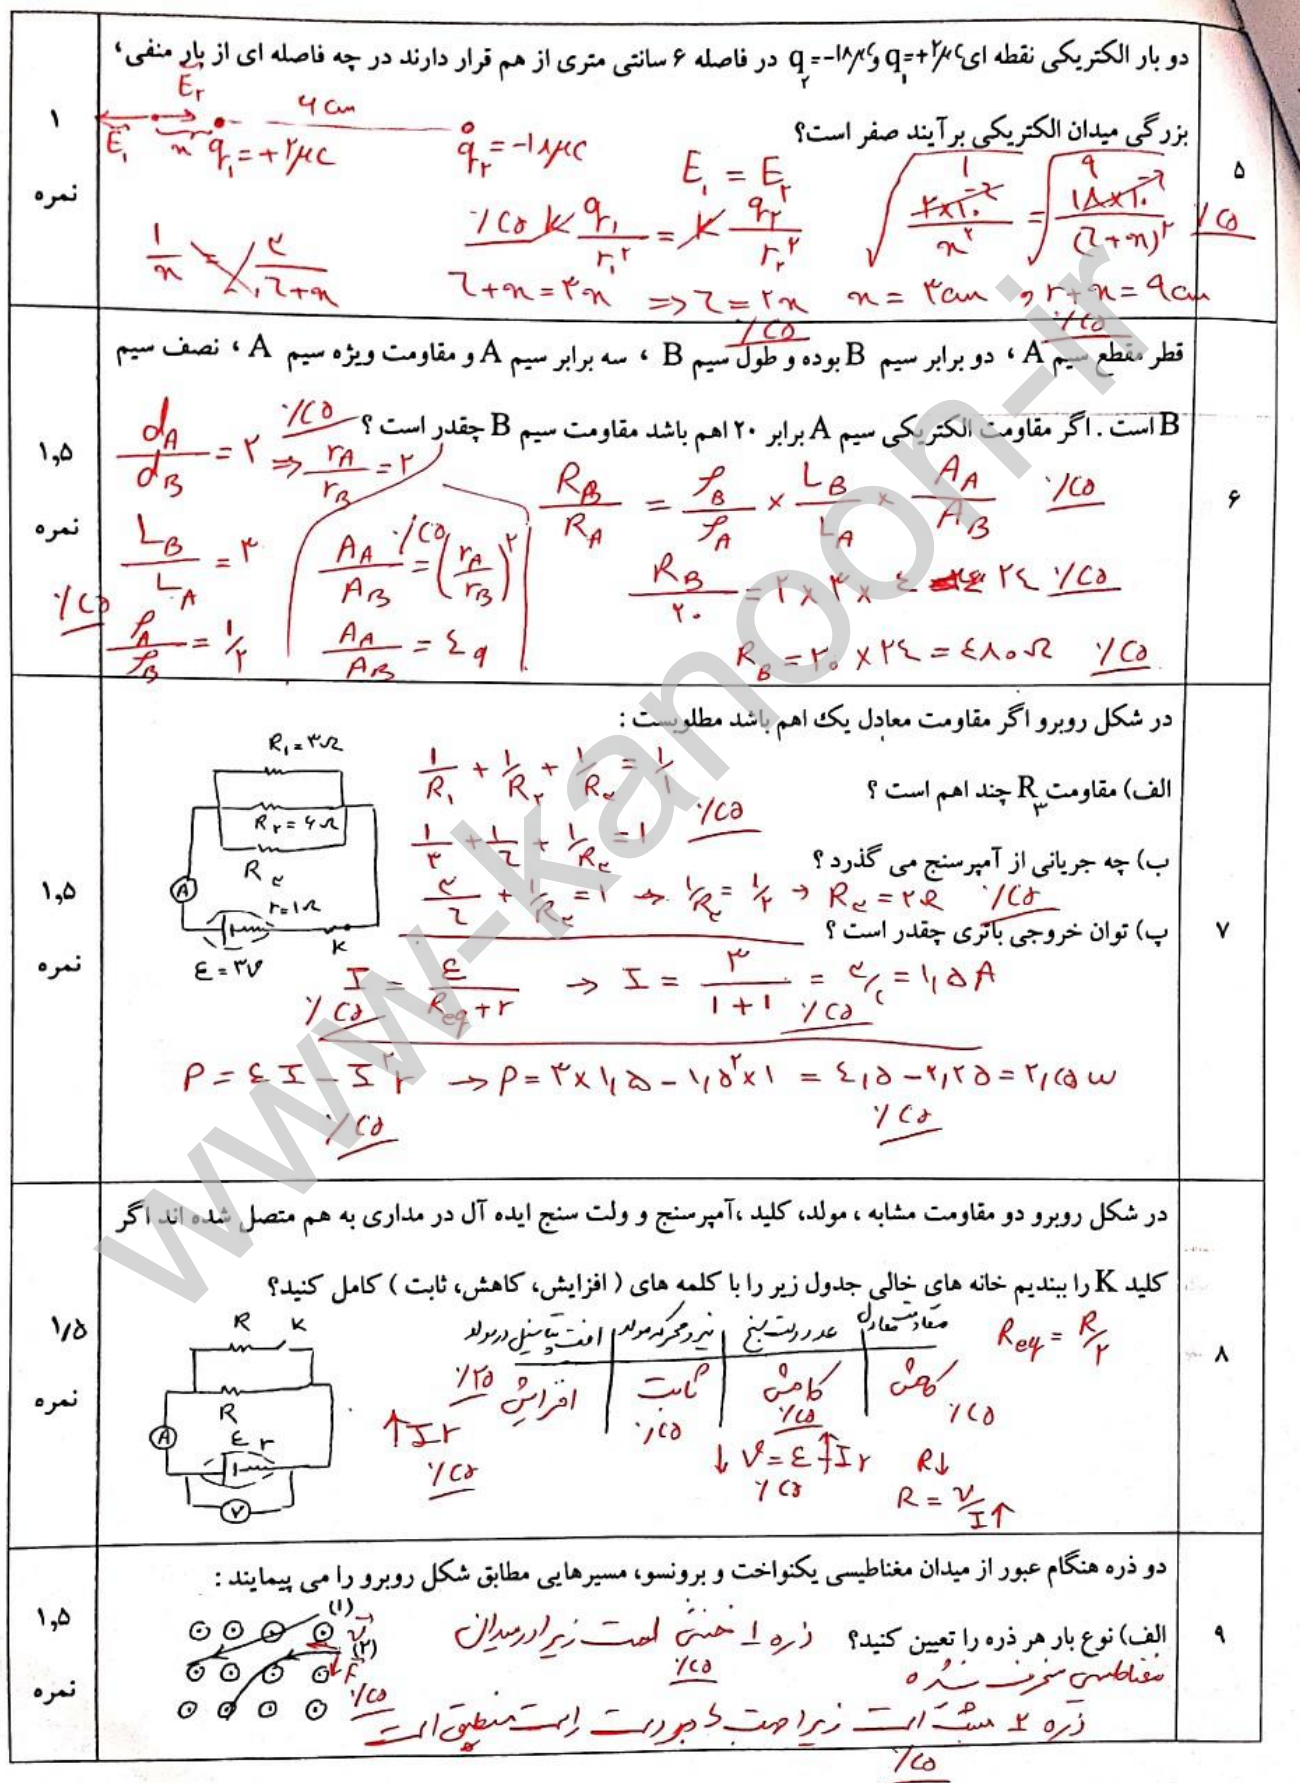 دو بار الکتریکی نقطه ای q₁=+۲μc و q₂=-۱۸μc در فاصله ۶ سانتی متری از هم قرار دارند در چه فاصله ای از بار منفی،
بزرگی میدان الکتریکی برآیند صفر است؟
۵
۱
نمره
E₁ E₂ x q₁=+۲μC ۶cm q₂=-۱۸μC
E₁ = E₂
k q₁/r₁² = k q₂/r₂²
√(۲×۱۰⁻⁶/x²) = √(۱۸×۱۰⁻⁶/(۶+x)²)
۱/x = ۳/(۶+x)
۶+x=۳x ⇒ ۶=۲x x=۳cm و ۶+x=۹cm
قطر مقطع سیم A ، دو برابر سیم B بوده و طول سیم B ، سه برابر سیم A و مقاومت ویژه سیم A ، نصف سیم
B است . اگر مقاومت الکتریکی سیم A برابر ۲۰ اهم باشد مقاومت سیم B چقدر است ؟
۶
۱,۵
نمره
d_A/d_B = ۲ ⇒ r_A/r_B = ۲
R_B/R_A = ρ_B/ρ_A × L_B/L_A × A_A/A_B
L_B/L_A = ۳
A_A/A_B = (r_A/r_B)²
R_B/۲۰ = ۲×۳×۴ = ۲۴
ρ_A/ρ_B = ۱/۲
A_A/A_B = ۴
R_B = ۲۰ × ۲۴ = ۴۸۰Ω
در شکل روبرو اگر مقاومت معادل یک اهم باشد مطلوبست :
الف) مقاومت R₃ چند اهم است ؟
ب) چه جریانی از آمپرسنج می گذرد ؟
پ) توان خروجی باتری چقدر است ؟
۷
۱,۵
نمره
R₁=۳Ω
R₂=۶Ω
R₃
A
r=۱Ω
K
ε=۳V
۱/R₁ + ۱/R₂ + ۱/R₃ = ۱/۱
۱/۳ + ۱/۶ + ۱/R₃ = ۱
۳/۶ + ۱/R₃ = ۱ → ۱/R₃ = ۱/۲ → R₃ = ۲Ω
I = ε/(R_eq+r) → I = ۳/(۱+۱) = ۳/۲ = ۱,۵A
P = εI - I²r → P = ۳×۱,۵ - ۱,۵²×۱ = ۴,۵ - ۲,۲۵ = ۲,۲۵ w
در شکل روبرو دو مقاومت مشابه ، مولد، کلید ،آمپرسنج و ولت سنج ایده آل در مداری به هم متصل شده اند اگر
کلید K را ببندیم خانه های خالی جدول زیر را با کلمه های ( افزایش، کاهش، ثابت ) کامل کنید؟
۸
۱/۵
نمره
R K
R
A
ε r
V
مقاومت معادل عدد ولت سنج نیرو محرکه مولد افت پتانسیل در مولد
کاهش کاهش ثابت افزایش
R_eq = R/۲
↑Ir
↓V=ε-↑Ir
R↓
R = V/I↑
دو ذره هنگام عبور از میدان مغناطیسی یکنواخت و برونسو، مسیرهایی مطابق شکل روبرو را می پیمایند :
الف) نوع بار هر ذره را تعیین کنید؟
۹
۱,۵
نمره
(۱)
(۲)
V
F
ذره ۱ خنثی است زیرا در میدان
مغناطیسی منحرف نشده
ذره ۲ مثبت است زیرا جهت با دست راست منطبق است
www.kanoon.ir